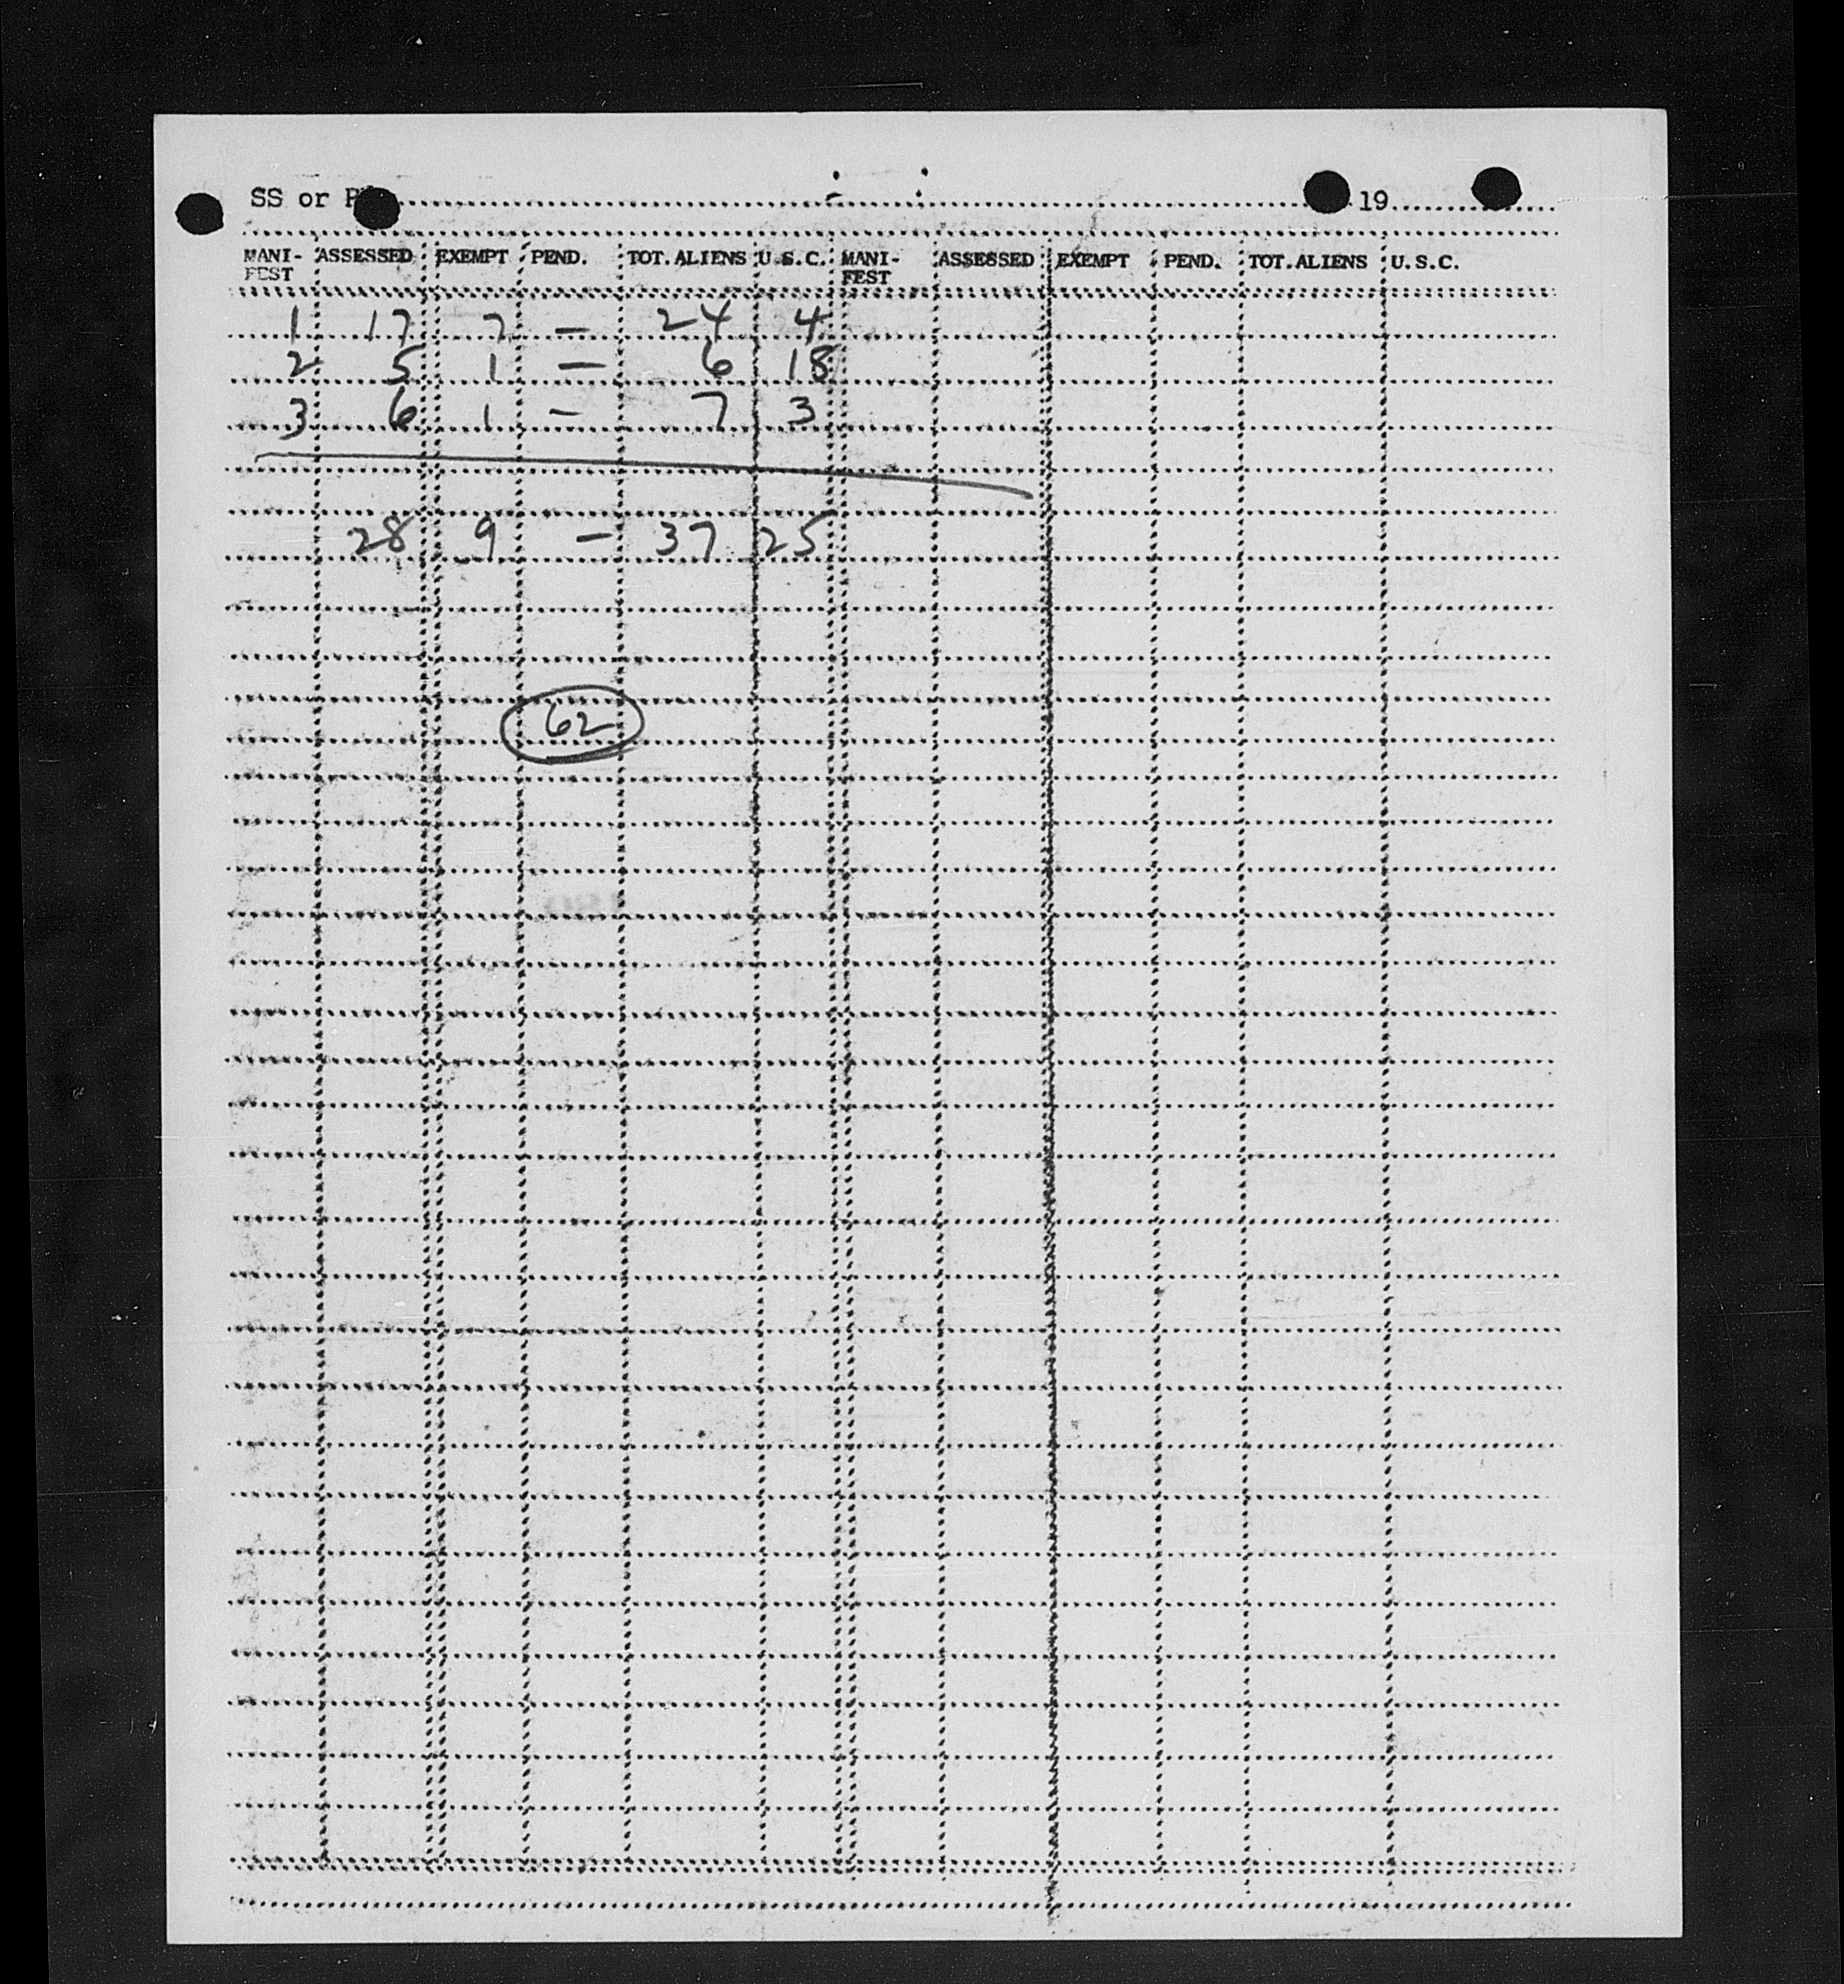 SS or 19
MANI-FEST ASSESSED EXEMPT PEND. TOT.ALIENS U.S.C. MANI-FEST ASSESSED EXEMPT PEND. TOT.ALIENS U.S.C.
1 17 7 – 24 4
2 5 1 – 6 18
3 6 1 – 7 3
28 9 – 37 25
62